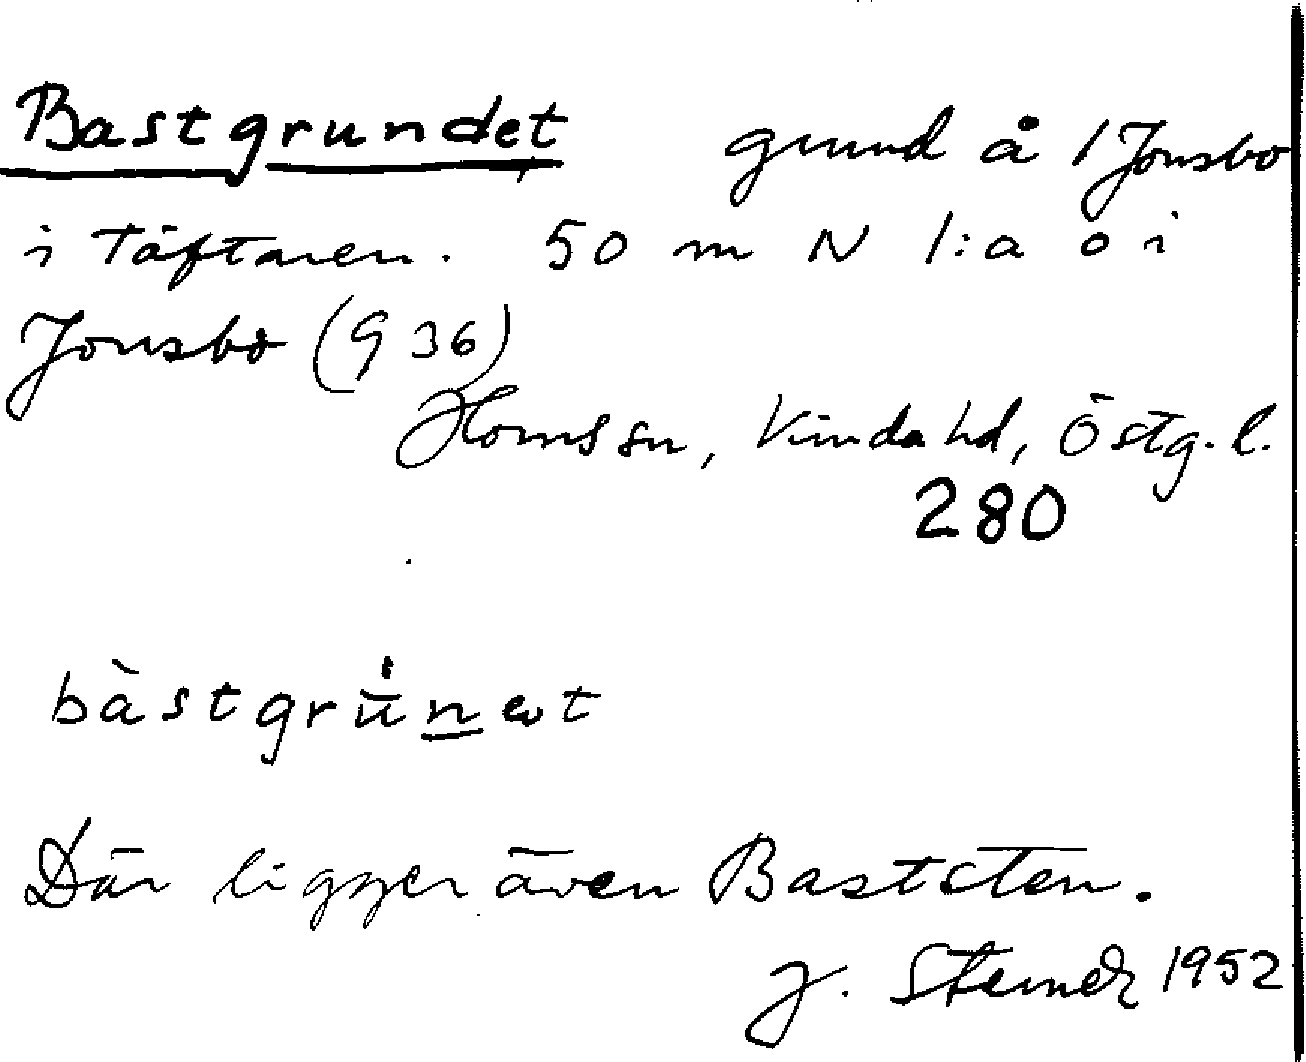 Bastgrundet grund å 1 Jonsbo
i Täftaren. 50 m N 1:a ö i
Jonsbo (G 36)
Horns sn, Kinda hd, Östg. l.
280
bàstgrùnet
Där ligger även Baststen.
J. Sterner 1952